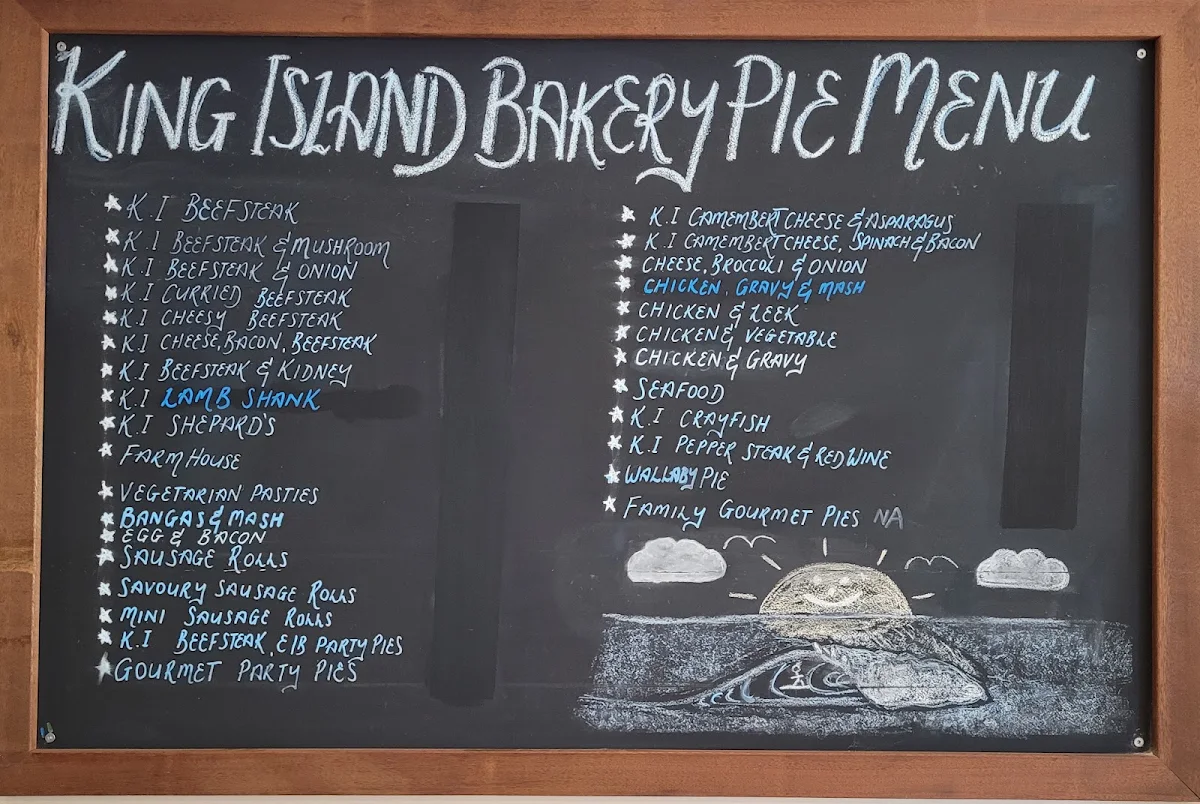 KING ISLAND BAKERY PIE MENU
K.I BEEFSTEAK
K.I BEEFSTEAK & MUSHROOM
K.I BEEFSTEAK & ONION
K.I CURRIED BEEFSTEAK
K.I CHEESY BEEFSTEAK
K.I CHEESE, BACON, BEEFSTEAK
K.I BEEFSTEAK & KIDNEY
K.I LAMB SHANK
K.I SHEPARD'S
FARM HOUSE
VEGETARIAN PASTIES
BANGAS & MASH
EGG & BACON
SAUSAGE ROLLS
SAVOURY SAUSAGE ROLLS
MINI SAUSAGE ROLLS
K.I BEEFSTEAK, E/B PARTY PIES
GOURMET PARTY PIES
K.I CAMEMBERT CHEESE & ASPARAGUS
K.I CAMEMBERT CHEESE, SPINACH & BACON
CHEESE, BROCCOLI & ONION
CHICKEN, GRAVY & MASH
CHICKEN & LEEK
CHICKEN & VEGETABLE
CHICKEN & GRAVY
SEAFOOD
K.I CRAYFISH
K.I PEPPER STEAK & RED WINE
WALLABY PIE
FAMILY GOURMET PIES NA